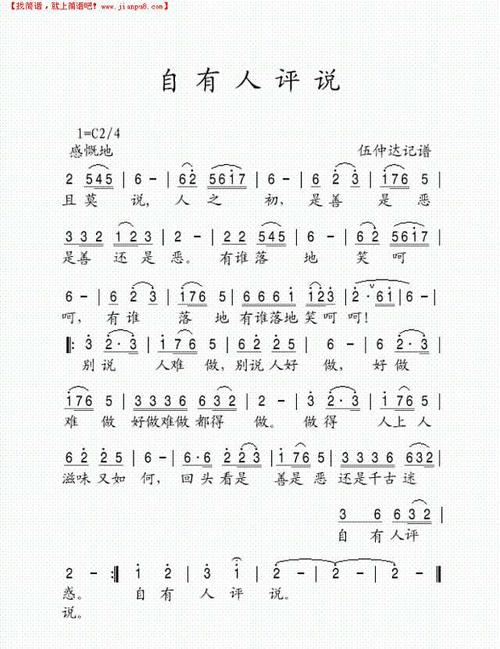 【找简谱，就上简谱吧! www.jianpu8.com】
自有人评说
1=C2/4
感慨地 伍仲达记谱
2 545 | 6 - | 62 5617 | 6 - | 6 2 3 | 176 5 |
且莫 说, 人 之 初, 是善 是 恶
332 123 | 2 - | 22 545 | 6 - | 6 2 5617 |
是善 还是 恶。 有谁落 地 笑 呵
6 - | 6 2 3 | 176 5 | 6666 123 | 2·61 | 6 - |
呵, 有谁 落 地有谁落地笑 呵 呵!
3 3 | 2·3 | 176 5 | 1233 | 2·3 | 6 3 | 2·3 |
别说 人难 做, 别说人好 做, 好做
难 做 好做难做都得 做。 做得 人上人
滋味又如 何, 回头看是 善是恶 还是千古迷
3 6 632
自 有人评
2 - :| 1 2 | 3 1 | 2 - | 2 - | 2 - |
惑。 自 有 人 评 说。
说。